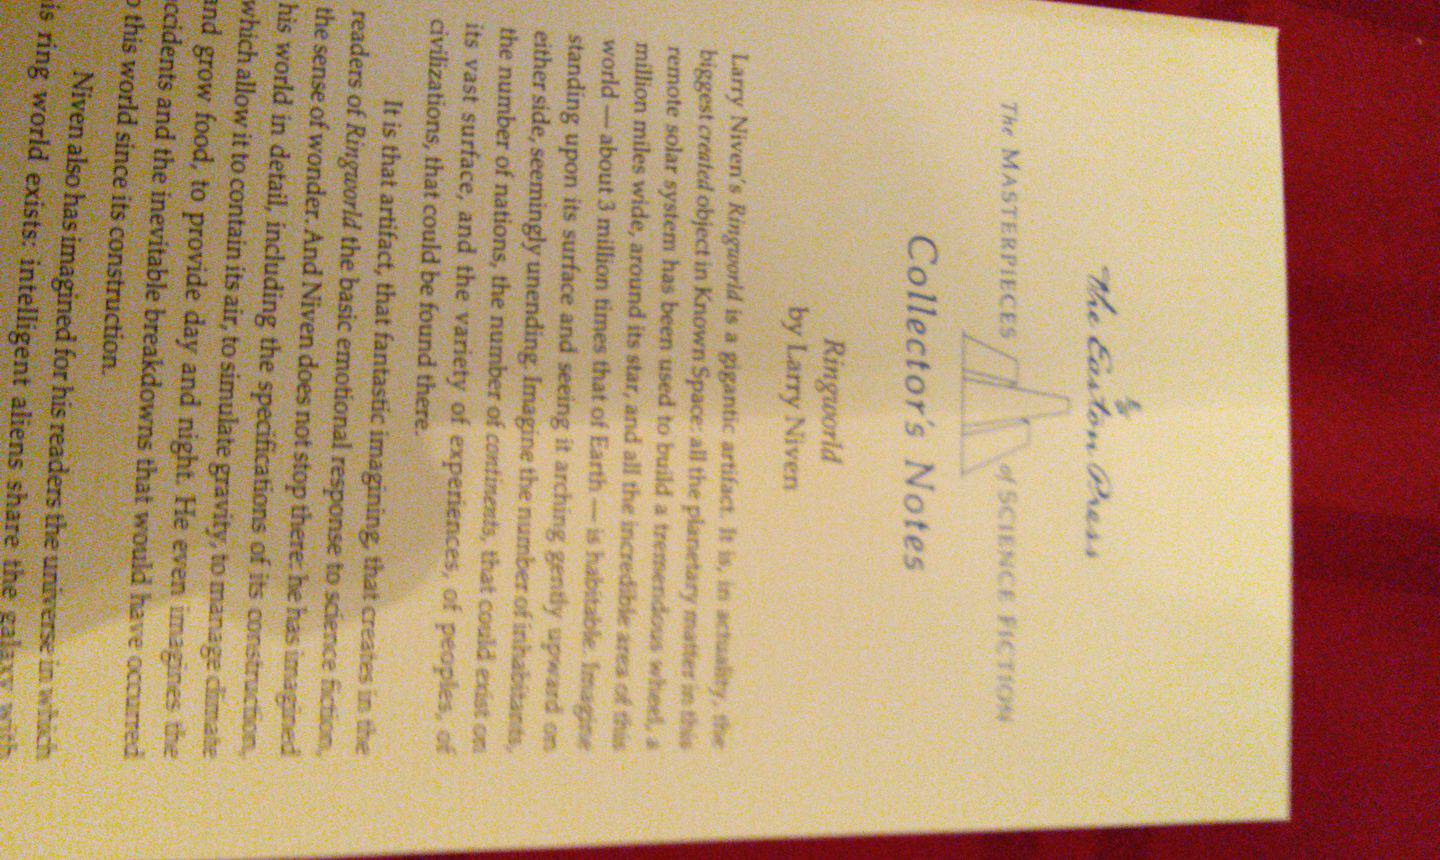 The Easton Press
The MASTERPIECES of SCIENCE FICTION
Collector's Notes
Ringworld
by Larry Niven
Larry Niven's Ringworld is a gigantic artifact. It is, in actuality, the
biggest created object in Known Space; all the planetary matter in this
remote solar system has been used to build a tremendous wheel, a
million miles wide, around its star, and all the incredible area of this
world — about 3 million times that of Earth — is habitable. Imagine
standing upon its surface and seeing it arching gently upward on
either side, seemingly unending. Imagine the number of inhabitants,
the number of nations, the number of continents, that could exist on
its vast surface, and the variety of experiences, of peoples, of
civilizations, that could be found there.
It is that artifact, that fantastic imagining, that creates in the
readers of Ringworld the basic emotional response to science fiction,
the sense of wonder. And Niven does not stop there: he has imagined
his world in detail, including the specifications of its construction,
which allow it to contain its air, to simulate gravity, to manage climate
and grow food, to provide day and night. He even imagines the
accidents and the inevitable breakdowns that would have occurred
o this world since its construction.
Niven also has imagined for his readers the universe in which
is ring world exists: intelligent aliens share the galaxy with